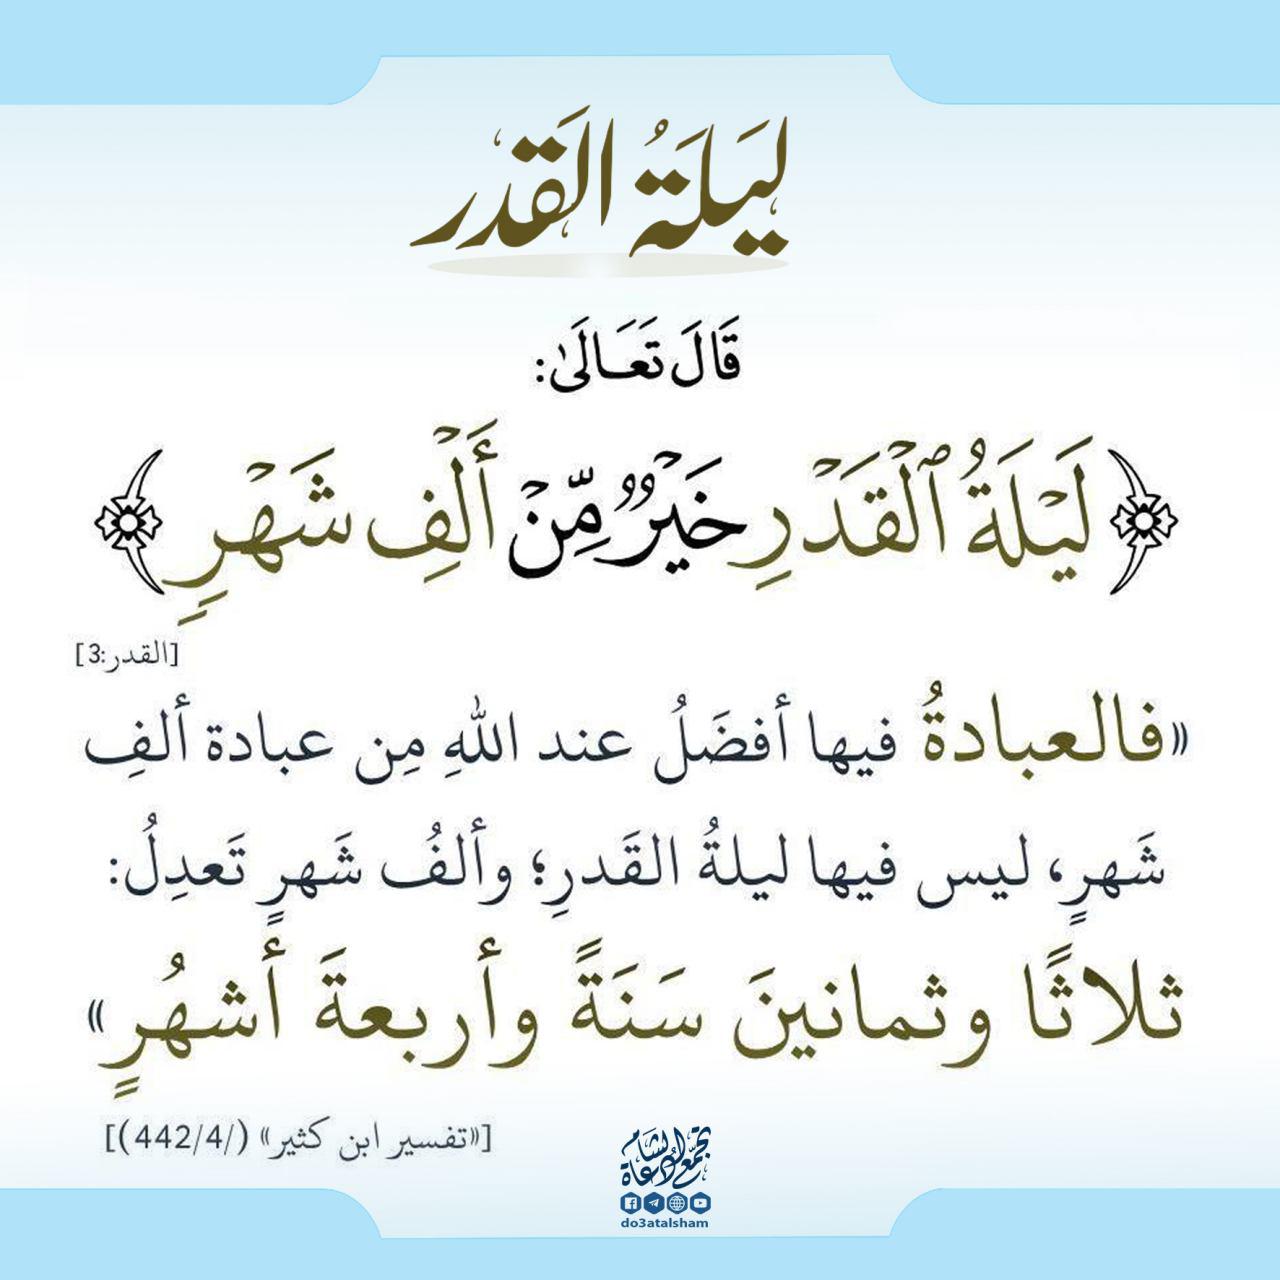 لَيْلَةُ القَدْر
قَالَ تَعَالَىٰ:
﴿لَيْلَةُ ٱلْقَدْرِ خَيْرٌ مِّنْ أَلْفِ شَهْرٍ﴾
[القدر:3]
«فالعبادةُ فيها أفضَلُ عند اللهِ مِن عبادة ألفِ
شَهرٍ، ليس فيها ليلةُ القَدرِ؛ وألفُ شَهرٍ تَعدِلُ:
ثلاثًا وثمانينَ سَنَةً وأربعةَ أشهُرٍ»
[«تفسير ابن كثير» (/442/4)]
تجمّع دعاة الشام
do3atalsham